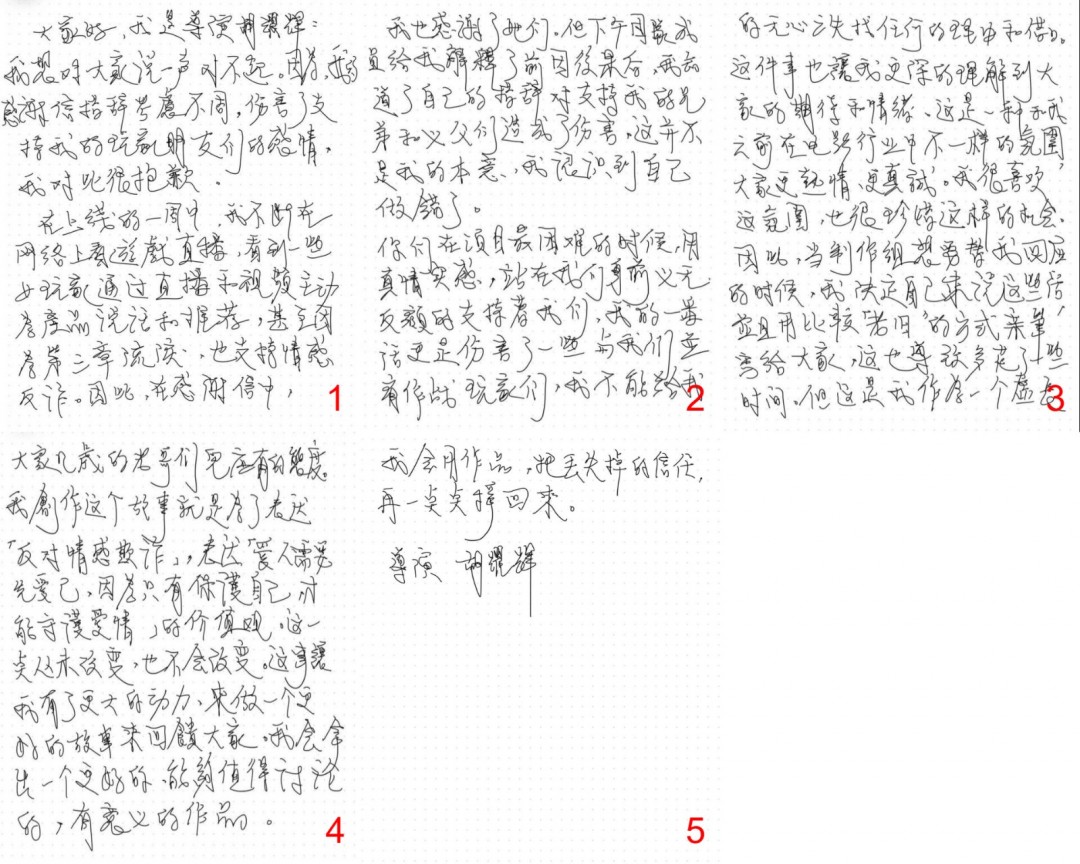 大家好,我是導演胡耀輝:
我想对大家说一声对不起。因為我的
感谢信措辞考慮不周,伤害了支
持我的玩家朋友们的感情,
我对此很抱歉。
在上线的一周中,我不断在
网络上看遊戲直播,看到一些
女玩家通过直播和视频主动
為產品说话和推荐,甚至因
為第二章流淚,也支持情感
反诈。因此,在感謝信中,
1
我也感謝了她们。但下午同事
员给我解釋了前因後果后,我知
道了自己的措辞对支持我的兄
弟和义父们造成了伤害,这并不
是我的本意,我认識到自己
做錯了。
你们在项目最困难的时候,用
真情实感,站在我们身前义无
反顧的支持着我们,我的一番
话更是伤害了一些与我们並
肩作战玩家们,我不能给我
2
的无心之失找任何的理由和借口。
这件事也讓我更深的理解到大
家的期待和情绪。这是一种和我
之前在电影行业中不一样的氛圍,
大家更熱情、更真誠。我很喜欢
这氛圍,也很珍惜这样的机会。
因此,当制作组想要帮我回应
的时候,我决定自己来说这些话
並且用比較“老旧”的方式亲筆
寫给大家,这也導致多花了一些
时间。但这是我作為一个虚長
3
大家几歲的老哥们兒应有的態度。
我創作这个故事就是為了表达
「反对情感欺诈」,表达「爱人需要
先爱己,因為只有保護自己,才
能守護爱情」的价值观。这一
点从未改变,也不会改变。这事讓
我有了更大的动力,来做一个更
好的故事来回饋大家。我会拿
出一个更好的、能夠值得讨论
的,有意义的作品。
4
我会用作品,把丢失掉的信任,
再一点点撑回来。
導演 胡耀輝
5